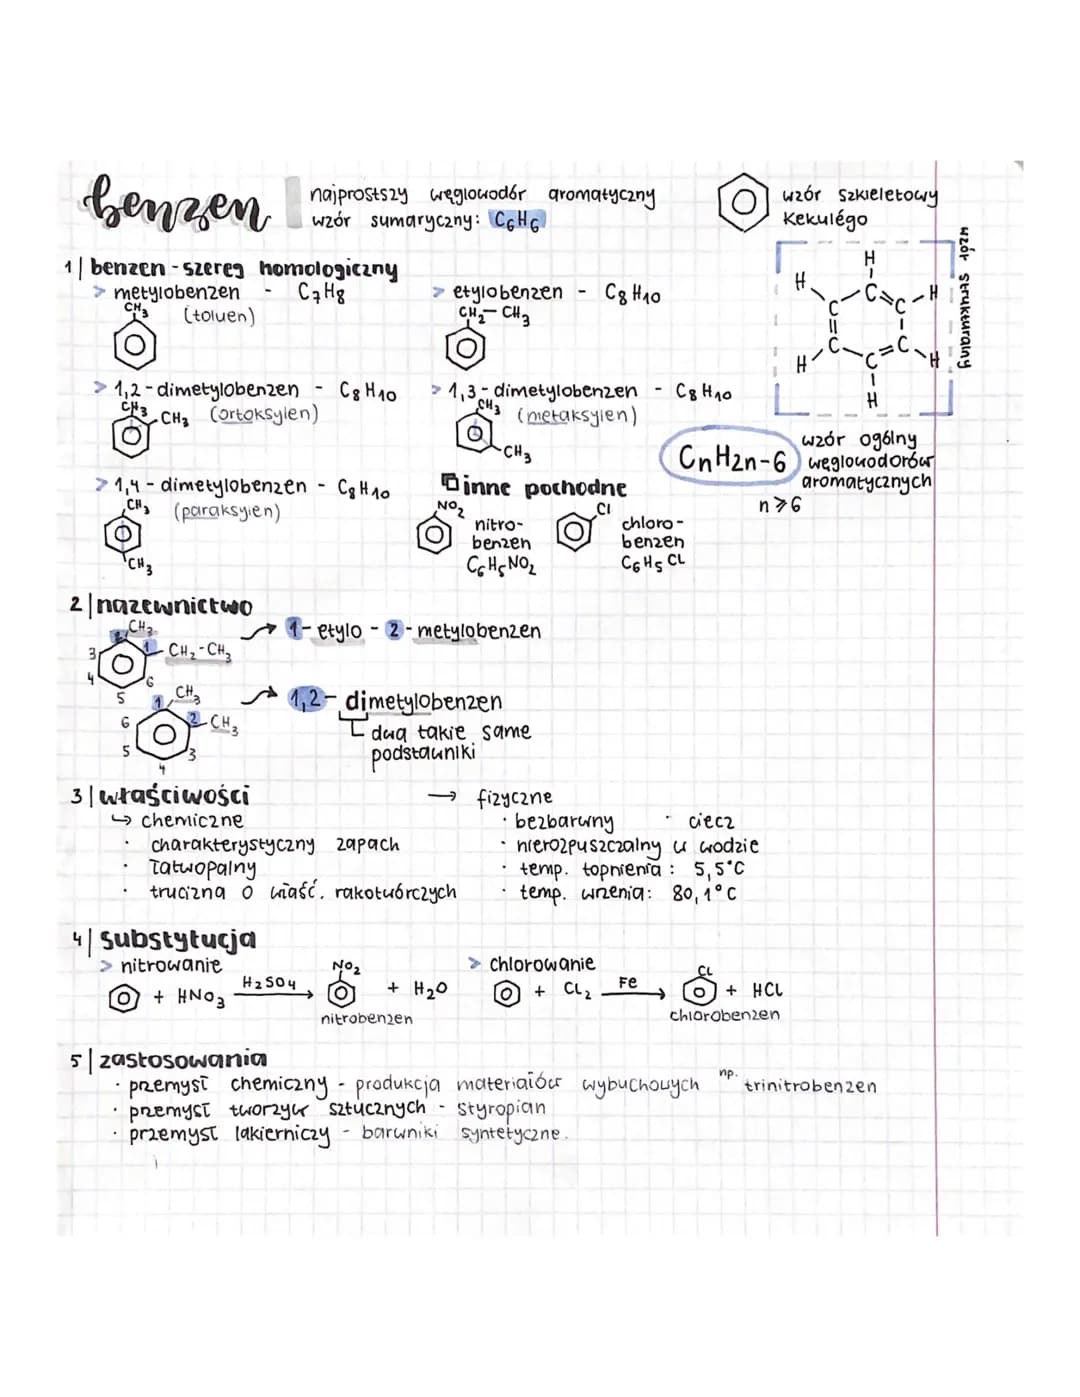 benzen
najprostszy węglowodór aromatyczny
wzór sumaryczny: C6H6
wzór szkieletowy
Kekulégo
wzór strukturalny
H
H C C H
C C
H C C H
H
1| benzen - szereg homologiczny
> metylobenzen - C7H8
(toluen)
CH3
> etylobenzen - C8H10
CH2-CH3
> 1,2-dimetylobenzen - C8H10
CH3
CH3
(ortoksylen)
> 1,3-dimetylobenzen - C8H10
CH3
(metaksylen)
CH3
CnH2n-6
wzór ogólny
węglowodorów
aromatycznych
n⩾6
> 1,4-dimetylobenzen - C8H10
CH3
(paraksylen)
CH3
inne pochodne
NO2
nitro-
benzen
C6H5NO2
Cl
chloro-
benzen
C6H5Cl
2| nazewnictwo
CH3
2 1 CH2-CH3
3 4 5 6
1-etylo-2-metylobenzen
1 CH3
2 CH3
6 5 4 3
1,2-dimetylobenzen
dwa takie same
podstawniki
3| właściwości
↪ chemiczne
· charakterystyczny zapach
· łatwopalny
· trucizna o właść. rakotwórczych
→ fizyczne
· bezbarwny · ciecz
· nierozpuszczalny w wodzie
· temp. topnienia: 5,5°C
· temp. wrzenia: 80,1°C
4| substytucja
> nitrowanie
+ HNO3 H2SO4 NO2 + H2O
nitrobenzen
> chlorowanie
+ Cl2 Fe Cl + HCl
chlorobenzen
5| zastosowania
· przemysł chemiczny - produkcja materiałów wybuchowych np. trinitrobenzen
· przemysł tworzyw sztucznych - styropian
· przemysł lakierniczy - barwniki syntetyczne.